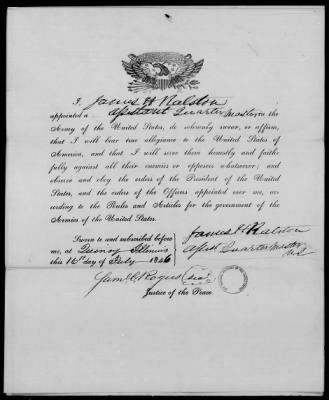 I, James H Ralston
appointed a Assistant Quarter Master in the
Army of the United States, do solemnly swear, or affirm,
that I will bear true allegiance to the United States of
America, and that I will serve them honestly and faith
fully against all their enemies or opposers whatsoever; and
observe and obey the orders of the President of the United
States, and the orders of the Officers appointed over me, ac-
cording to the Rules and Articles for the government of the
Armies of the United States.
James H Ralston
Asst Quarter Master
Sworn to and subscribed before
me, at Quincy Illinois
this 16th day of July 1846
Saml C Rogers (seal)
Justice of the Peace.